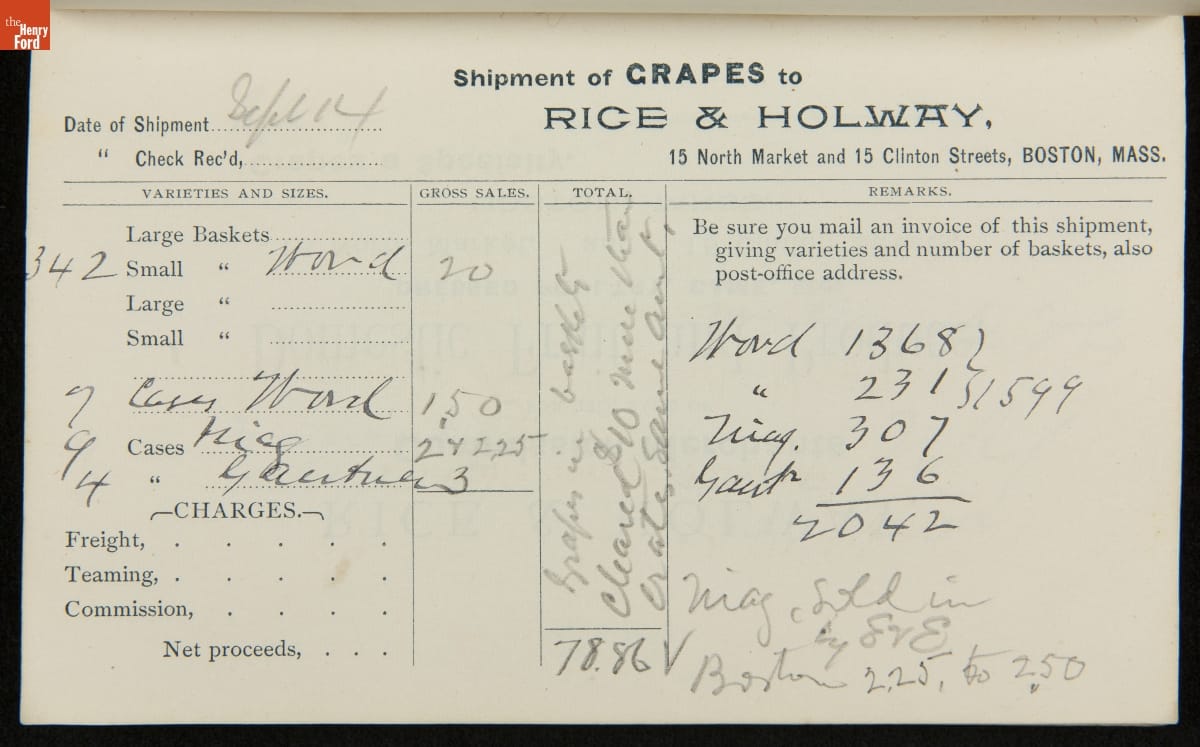 the
Henry
Ford
Shipment of GRAPES to
RICE & HOLWAY,
15 North Market and 15 Clinton Streets, BOSTON, MASS.
Date of Shipment Sept 14
" Check Rec'd,
VARIETIES AND SIZES. GROSS SALES. TOTAL. REMARKS.
Large Baskets
342 Small " Word 20
Large "
Small "
7 Cases Word 1.50
9 Cases Niag 2.25
4 " Gaertner 3
CHARGES.
Freight,
Teaming,
Commission,
Net proceeds, 78.86 √
Grapes in baskets
Cleared $10 more than
crates same am't.
Be sure you mail an invoice of this shipment,
giving varieties and number of baskets, also
post-office address.
Word 1368
" 231 } 1599
Niag. 307
Gaert 136
2042
Niag. Sold in
by S & E
Boston 2.25, to 2.50